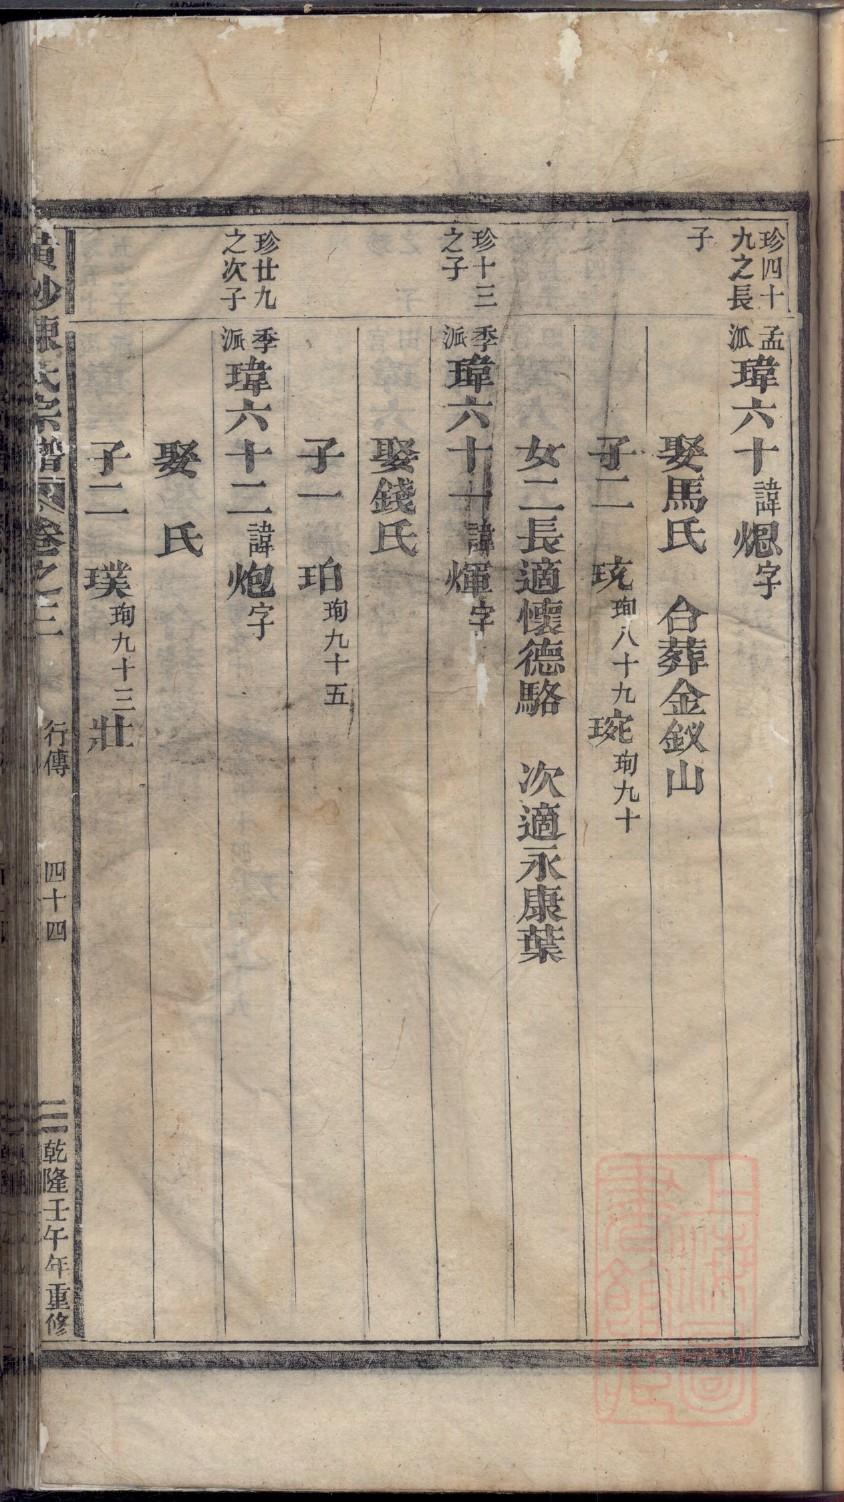 珍四十九之長子
孟派瑋六十諱熜字
娶馬氏 合葬金釵山
子二 珫珣八十九 琬珣九十
女二長適懷德駱 次適永康葉
珍十三之子
季派瑋六十一諱煇字
娶錢氏
子一 珀珣九十五
珍廿九之次子
季派瑋六十二諱炮字
娶 氏
子二 璞珣九十三 壯
陳氏宗譜 卷之三 行傳 四十四 乾隆壬午年重修
上海圖書館藏